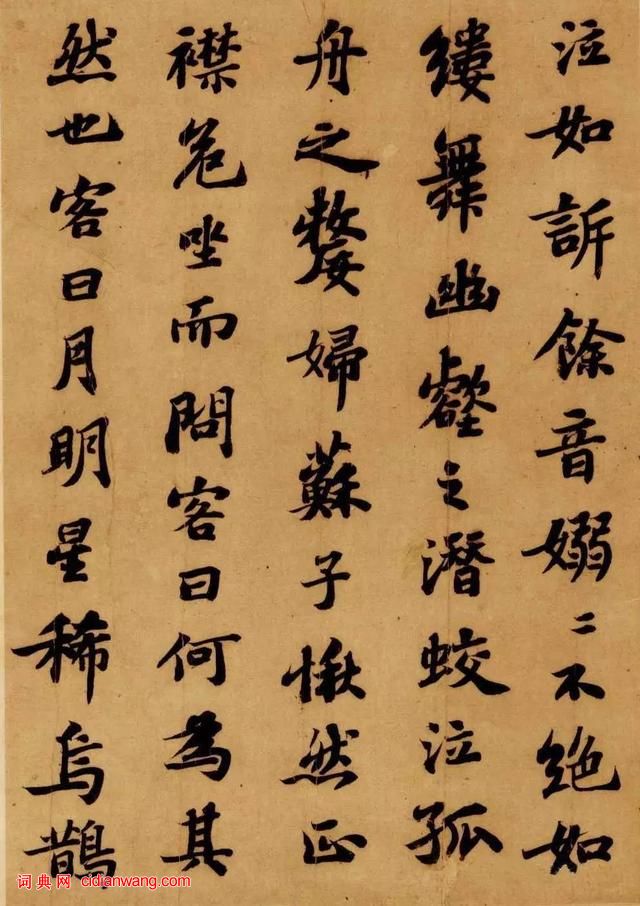 泣如訴餘音嫋〻不絕如
縷舞幽壑之潛蛟泣孤
舟之嫠婦蘇子愀然正
襟危坐而問客曰何為其
然也客曰月明星稀烏鵲
词典网 cidianwang.com